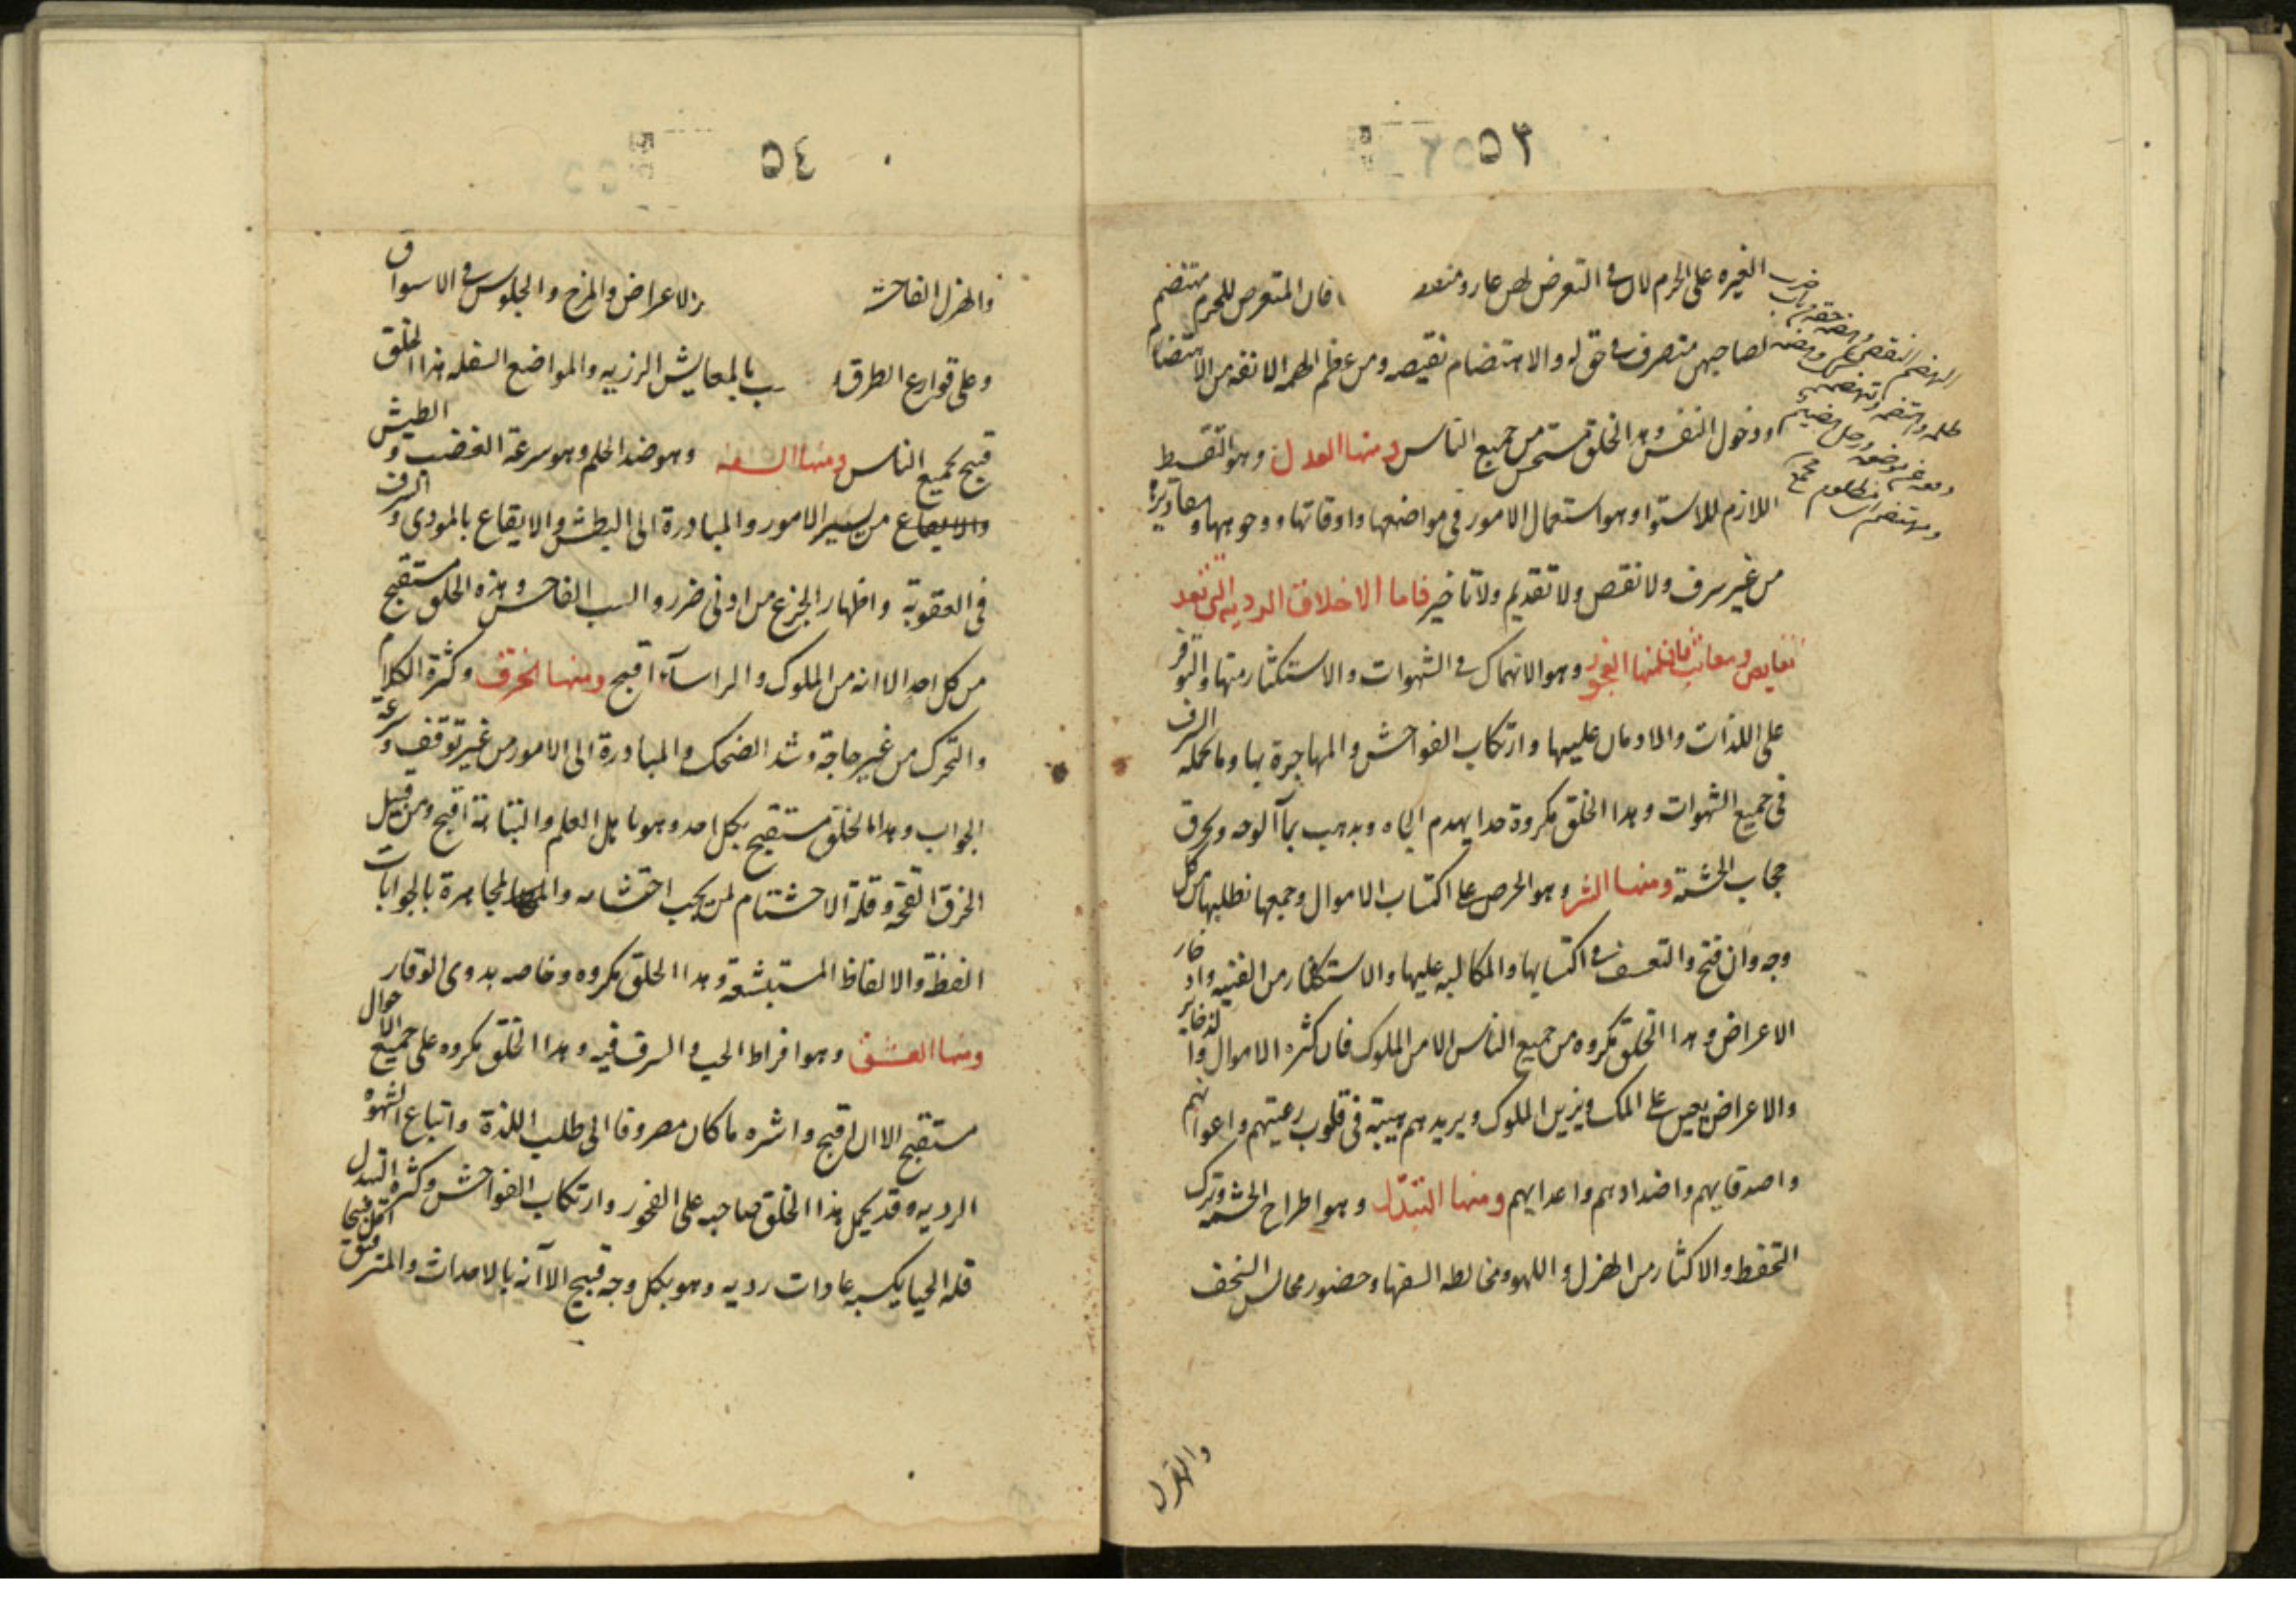 ٥٣
الغيره على الحرم لان في التعرض لهن عار ومنقصه فان المتعرض للحرم مهتضم
لصاحبهن متصرف في حق له والاهتضام نقيصه ومن عظم الهمه الانفه من الاهتضام
ودخول النقص وهذا الخلق مستحسن من جميع الناس ومنها العدل وهو التقسط
اللازم للاستوا وهو استعمال الامور في مواضعها واوقاتها ووجوهها ومقاديرها
من غير سرف ولا نقص ولا تقديم ولا تاخير فاما الاخلاق الرديه التي تعد
نقايص ومعايب فان منها الفجور وهو الانهماك في الشهوات والاستكثار منها والتوفر
على اللذات والادمان عليها وارتكاب الفواحش والمهاجرة بها وما لحمله السرف
في جميع الشهوات وهذا الخلق مكروة جدا يهدم الجاه ويذهب بمآ الوجه ويخرق
حجاب الحشمة ومنها الشر وهو الحرص على اكتساب الاموال وجمعها نطلبها من كل
وجه وان قبح والتعسف في اكتسابها والمكالبه عليها والاستكثار من القنيه وادخار
الاعراض وهذا الخلق مكروه من جميع الناس الا من الملوك فان كثره الاموال والذخاير
والاعراض يعين على الملك ويزين الملوك ويزيدهم هيبة في قلوب رعيتهم واعوانهم
واصدقايهم واضدادهم واعدايهم ومنها التبذل وهو اطراح الحشمة وترك
التحفظ والاكثار من الهزل واللهو ومخالطه السفها وحضور مجالس السخف
والهزل
٥٤
والهزل الفاحشه بالاعراض والمزح والجلوس في الاسواق
وعلى قوارع الطرق ب بالمعايش الرزيه والمواضع السفله هذا الخلق
قبيح بجميع الناس ومنها السفه وهو ضد الحلم وهو سرعة الغضب والطيش
والايقاع من يسير الامور والمبادرة الى البطش والايقاع بالموذى والسرف
في العقوبة واظهار الجزع من ادنى ضرر والسب الفاحش وهذه الخلق مستقبح
من كل احد الا انه من الملوك والراسآء اقبح ومنها الخرق وكثرة الكلام
والتحرك من غير حاجة وشد الضحك والمبادرة الى الامور من غير توقف وسرعة
الجواب وهذا الخلق مستقبح بكل احد وهو باهل العلم والنباهة اقبح ومن قبيل
الخرق القحه وقلة الاحتشام لمن يجب احتشامه والمجاهرة بالجوابات
الفظة والالفاظ المستبشعة وهذا الخلق مكروه وخاصه بذوى الوقار
ومنها العشق وهو افراط الحب والسرف فيه وهذا الخلق مكروه على جميع الاحوال
مستقبح الا ان اقبح واشره ما كان مصروفا الى طلب اللذة واتباع الشهوه
الرديه وقد يحمل هذا الخلق صاحبه على الفجور وارتكاب الفواحش وكثره التبذل
قله الحيا يكسبه عادات رديه وهو بكل وجه قبيح الا آنه بالاحداث والمترفين اقل قبحا